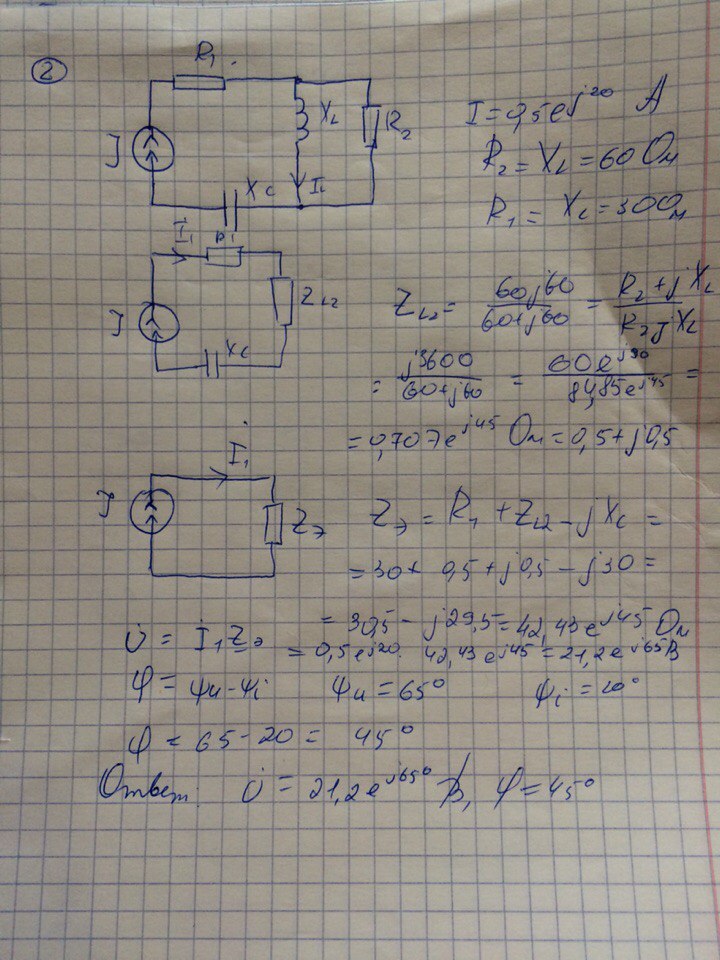 2
R₁
X_L
R₂
J
X_C
I_L
I = 0,5e^j20 А
R₂ = X_L = 60 Ом
R₁ = X_C = 30 Ом
İ₁
R₁
Z_L2
J
X_C
Z_L2 = 60j60 / 60+j60 = R₂+jX_L / R₂jX_L
= j3600 / 60+j60 = 60e^j90 / 84,85e^j45 =
= 0,707e^j45 Ом = 0,5+j0,5
İ₁
J
Z_Э
Z_Э = R₁ + Z_L2 - jX_C =
= 30 + 0,5 + j0,5 - j30 =
= 30,5 - j29,5 = 42,43e^j45 Ом
U̇ = İ₁Z_Э = 0,5e^j20 · 42,43e^j45 = 21,2e^j65 В
φ = ψu - ψi ψu = 65° ψi = 20°
φ = 65 - 20 = 45°
Ответ: U̇ = 21,2e^j65° В, φ = 45°